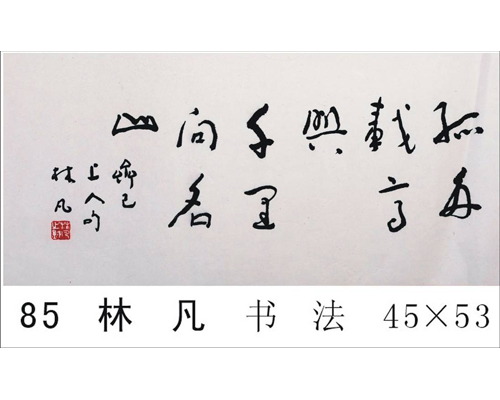 孤舟
載高
興
千里
向名
山
齊己
上人句
林凡
85 林 凡 书 法 45×53